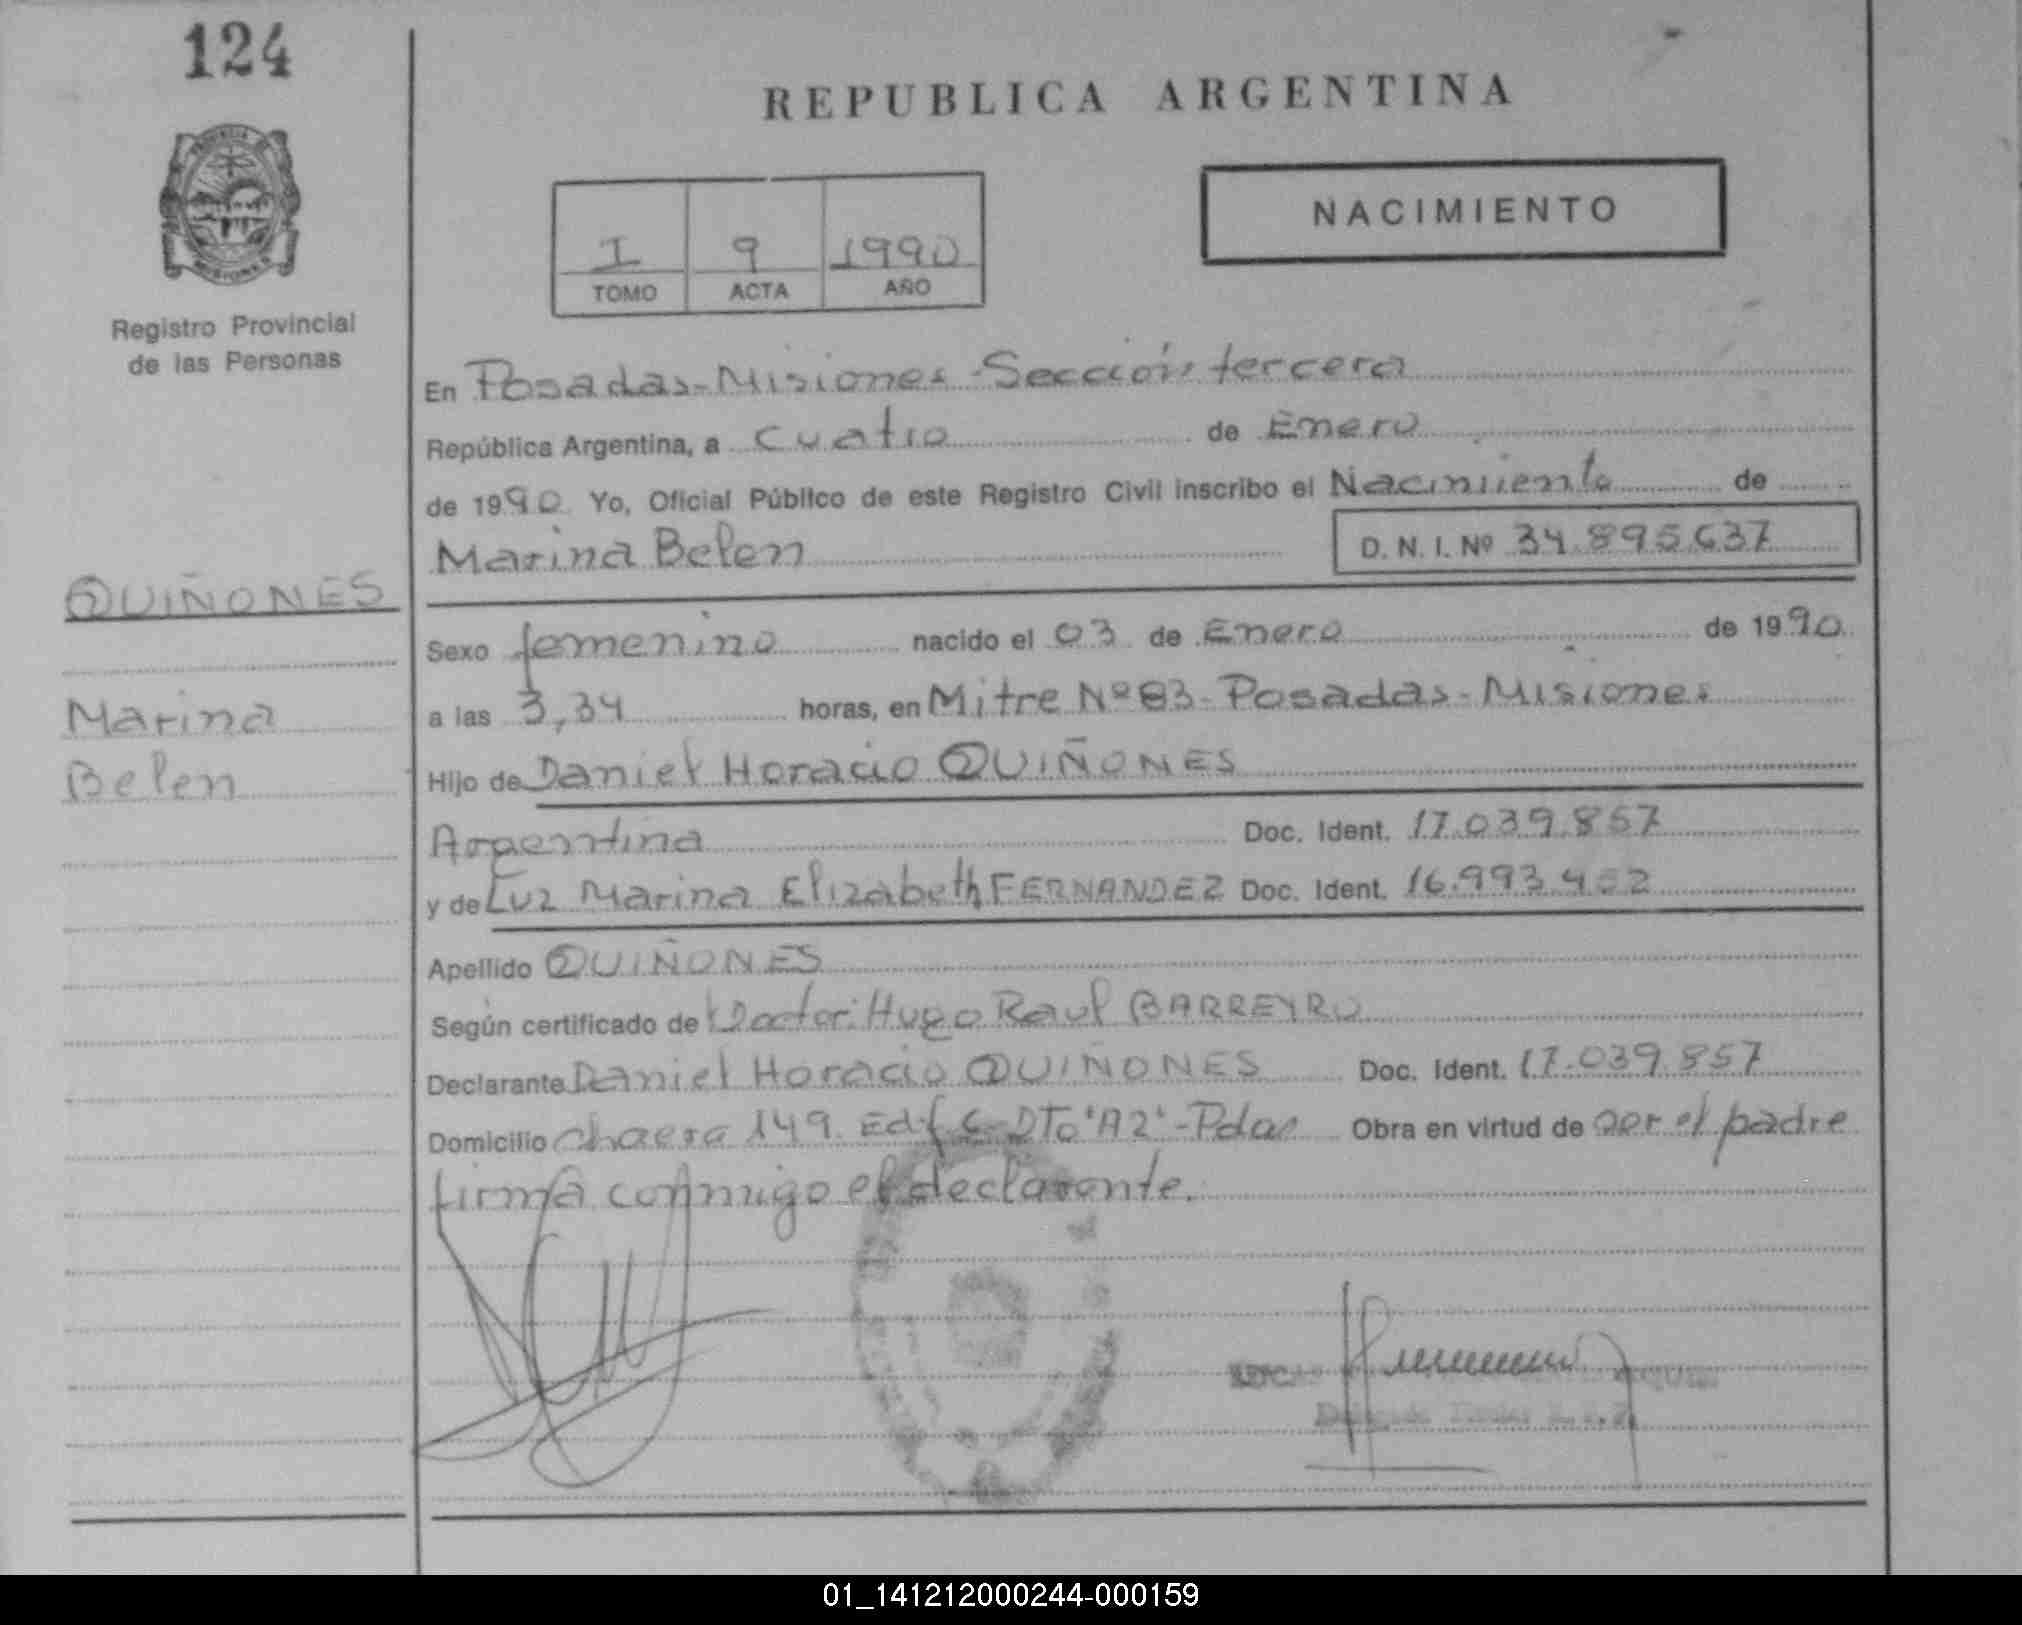 124
REPUBLICA ARGENTINA
PROVINCIA DE
MISIONES
Registro Provincial
de las Personas
I 9 1990
TOMO ACTA AÑO
NACIMIENTO
En Posadas-Misiones-Sección tercera
República Argentina, a cuatro de Enero
de 1990 Yo, Oficial Público de este Registro Civil inscribo el Nacimiento de
Marina Belen D. N. I. Nº 34.895.637
QUIÑONES
Marina
Belen
Sexo femenino nacido el 03 de Enero de 1990
a las 3,34 horas, en Mitre Nº 83-Posadas-Misiones
Hijo de Daniel Horacio QUIÑONES
Argentina Doc. Ident. 17.039.857
y de Luz Marina Elizabeth FERNANDEZ Doc. Ident. 16.993.452
Apellido QUIÑONES
Según certificado de Doctor: Hugo Raul BARREYRO
Declarante Daniel Horacio QUIÑONES Doc. Ident. 17.039.857
Domicilio chacra 149 Edif C-DTO "A2"-Pdas Obra en virtud de ser el padre
firma conmigo el declarante.
01_141212000244-000159